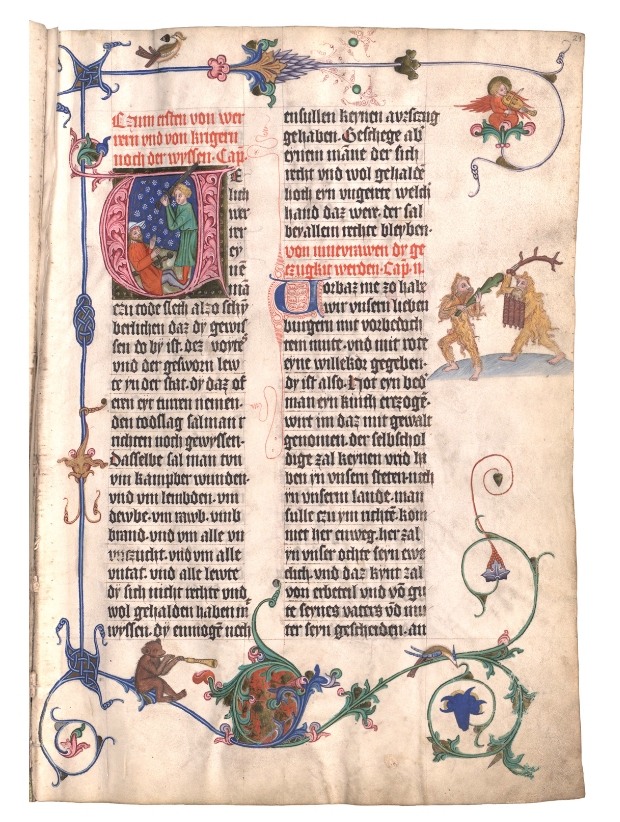 Czum ersten von wer
rern vnd von krigern
noch der wyssen. Cap.
man
czu tode slech also schy
berlichen daz dy gewis
sen do by ist. dez voyte
vnd der gesworn lew
te yn der stat. dy daz of
eren eyt turen nemen.
den todslag sal man t
richten noch gewyssen.
Dasselbe sal man tvn
vm kampber wunden.
vnd vm lembden. vm
dewbe. vm rawb. vmb
brand. vnd vm alle vn
vnczucht. vnd vm alle
vntat. vnd alle lewte
dy sich nicht rechte vnd
wol gehalden haben in
wyssen. dy enmogen noch
ensullen keynen awszcug
gehaben. Geschege ab
eynem manne der sich
recht vnd wol gehalde
hoth ern vngerete welch
hand daz were. der sal
bey allem rechte bleyben.
von iuncvrawen dy ge
czugkit werden. Cap. ii.
Vorbaz me zo habe
wir vnsern lieben
burgern mit vorbedoch
tem mute. vnd mit rote
eyne willekor gegeben.
dy ist also. Hot eyn bed
man eyn kinth erczogen.
wirt im daz mit gewalt
genomen. der selbschol
dige zal keynen vrid ha
ben in vnsern steten. noch
in vnserm lande. man
sulle czu ym richten. kom
met her enweg. her zal
yn vnser ochte seyn ewe
clich. vnd daz kynt zal
von erbeteil vnd von gu
te seynes vaters vnd mu
ter seyn gescheiden. an